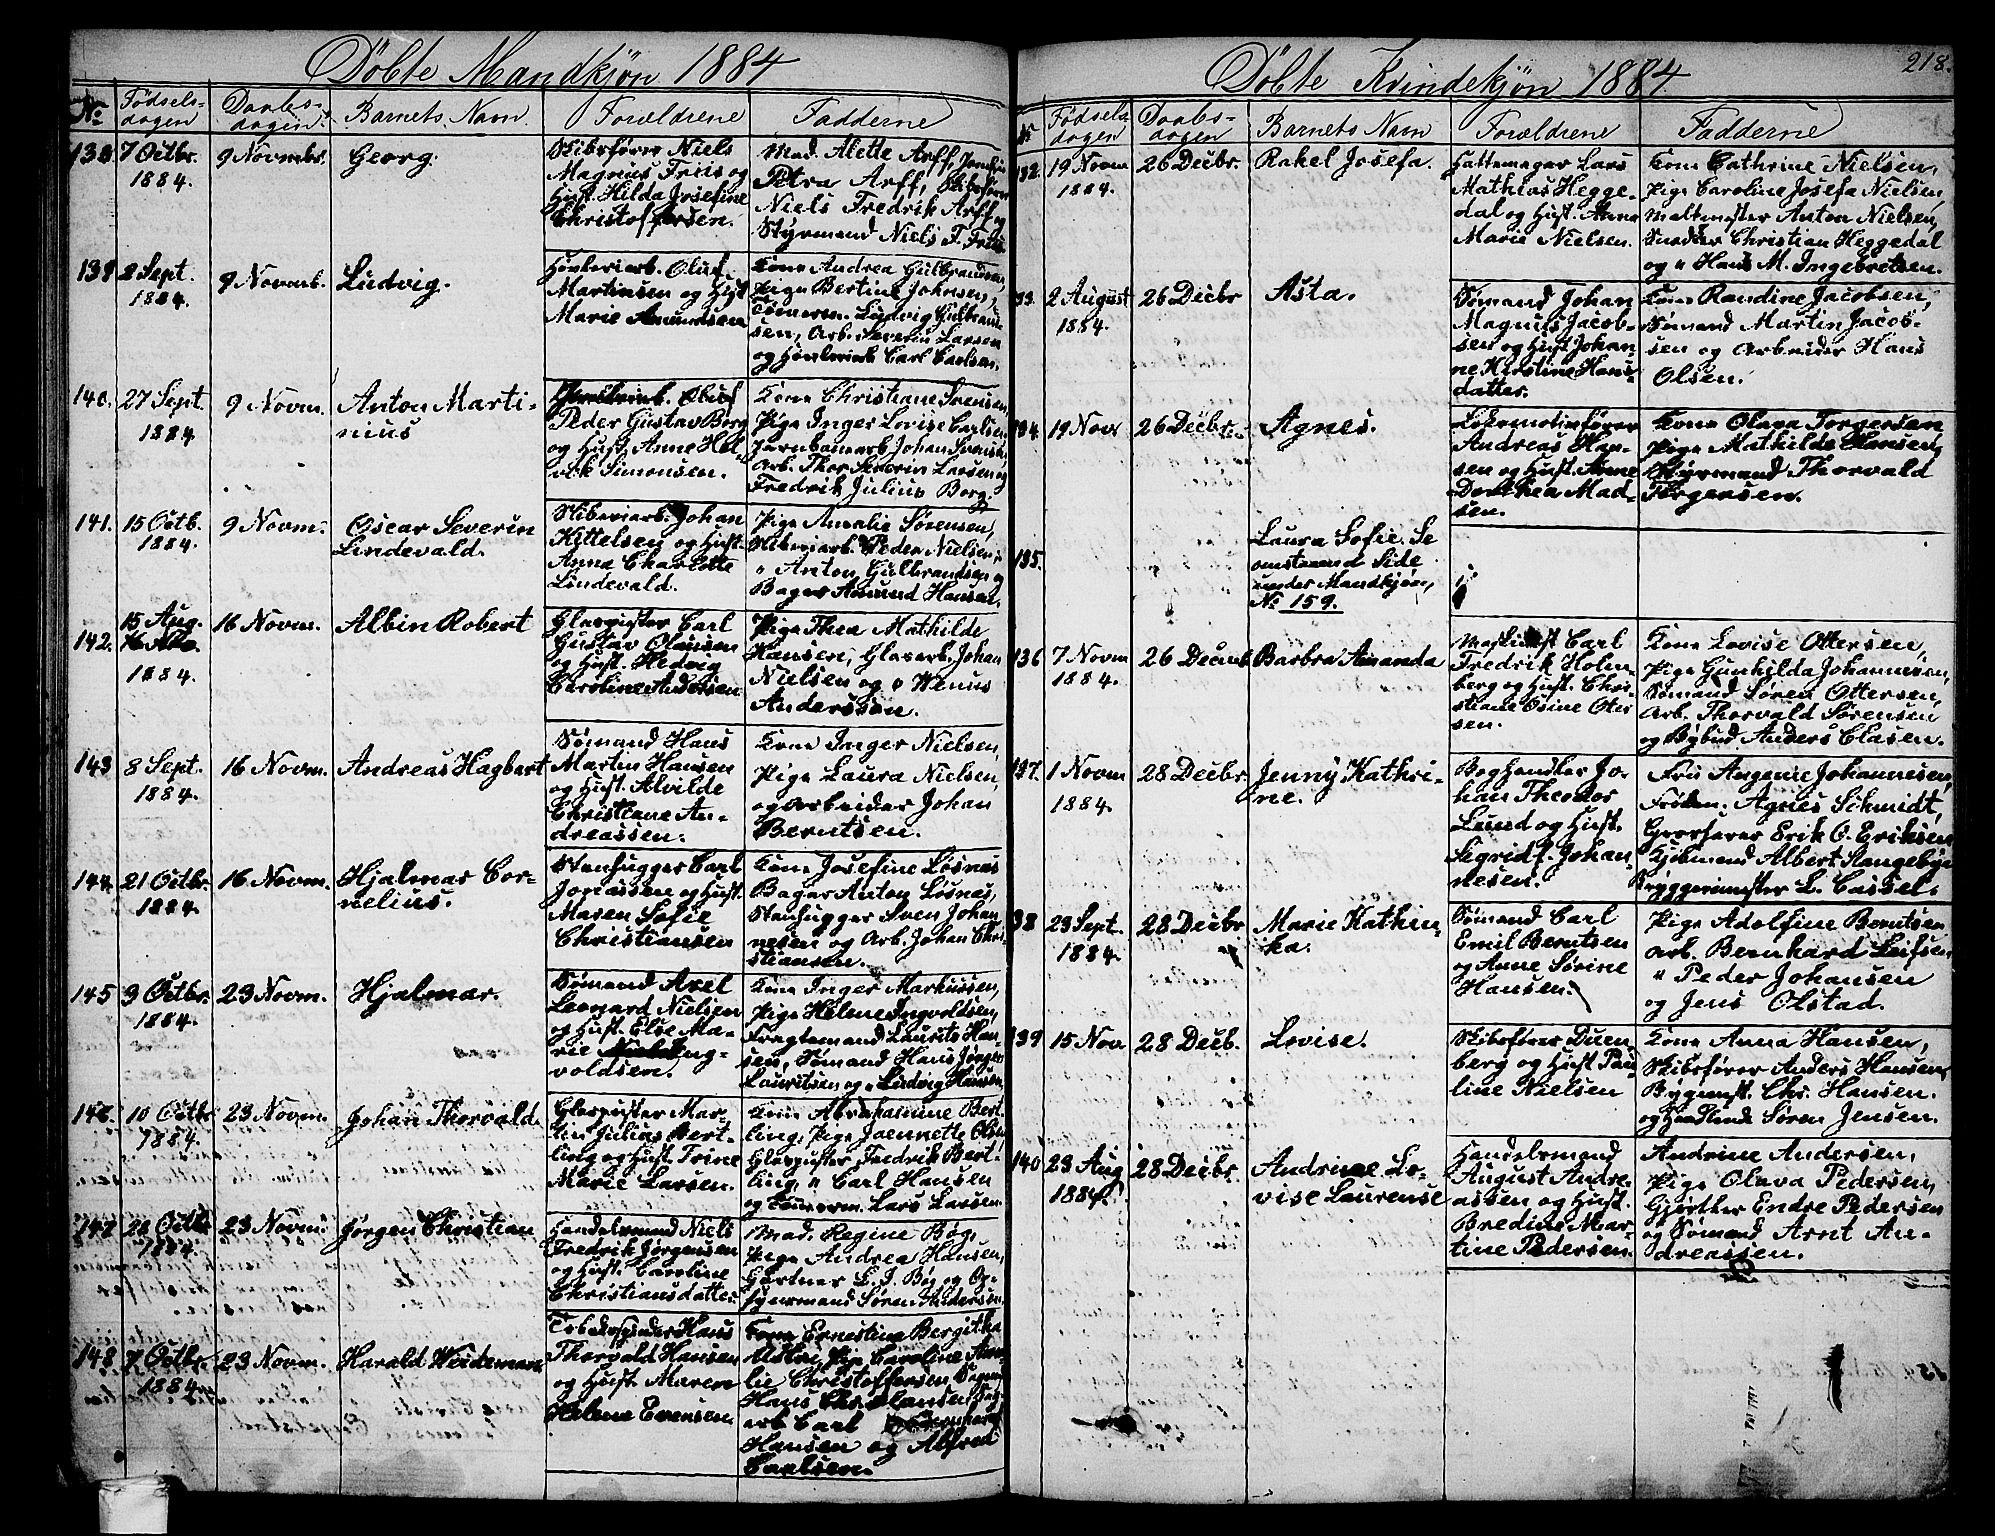 Döbte Mandkjön 1884
No
Fødsels-
dagen
Daabs-
dagen
Barnets Navn
Forældrene
Fadderne
138 7 Octbr.
1884.
9 Novmbr.
Georg.
Skibsfører Niels
Magnus Friis og
Hust. Hilda Josefine
Christoffersen.
Mad. Alette Arff,
Petra Arff, Skibsfører
Niels Fredrik Arff og
Styrmand Niels F. Friis
139 2 Sept.
1884.
9 Novmb.
Ludvig.
Høvleriarb. Oluf
Martinsen og Hust
Marie Amundsen
Kone Andrea Gulbrandsen,
Pige Bertine Johnsen,
Tømerm. Ludvig Gulbrand-
sen, Arb. Severin Larsen
og Høvlerieb. Carl Carlsen.
140. 27 Sept.
1884
9 Novm.
Anton Marti-
nius
Oluf
Peder Gustav Borg
og Hust. Anne Hel-
vick Simonsen.
Kone Christiane Svensen,
Pige Inger Lovise Carlsen
Jernbanearb Johan Svensen
Arb. Thor Severin Larsen og
Fredrik Julius Borg.
141. 15 Octb.
1884.
9 Novm.
Oscar Severin
Lindevald.
Skiberiarb. Johan
Kittelsen og Hust.
Anna Charlotte
Lindevald.
Pige Amalie Sörensen,
Skiberiarb. Peder Nielsen,
" Anton Gulbrandsen og
Bager Amund Hansen.
142. 15 Aug.
1884.
16 Novm.
Albin Robert
Glaspuster Carl
Gustav Olausen
og Hust. Hedvig
Caroline Andersen
Pige Thea Mathilde
Hansen, Glasarb. Johan
Nielsen og " Wenus
Anderssen.
143 8 Sept.
1884.
16 Novm.
Andreas Hagbart
Sømand Hans
Martin Hansen
og Hust. Alvilde
Christiane An-
dreassen.
Kone Inger Nielsen,
Pige Laura Nielsen,
og Arbeider Johan
Berntsen.
144. 21 Octbr.
1884.
16 Novm.
Hjalmar Cor-
nelius.
Stenhugger Carl
Jonassen og Hust.
Maren Sofie
Christiansen
Kone Josefine Løsnæs
Bager Anton Løsnæs,
Stenhugger Sven Johan
nesen og Arb. Johan Chri-
stiansen.
145 3 Octbr.
1884.
23 Novm.
Hjalmar.
Sømand Axel
Leonard Nielsen
og Hust. Else Ma-
rie Ing-
voldsen.
Kone Inger Markussen,
Pige Helene Ingvoldsen,
Fragtemand Laurits Han-
sen, Sømand Hans Jørgen
Lauritsen og " Ludvig Hansen.
146. 10 Octbr
1884.
23 Novm.
Johan Thorvald.
Glaspuster Mar-
tin Julius Bert-
ling og Hust. Trine
Marie Larsen.
Kone Abrahamine Bert-
ling, Pige Jaennette Olsen
Glaspuster Fredrik Bert-
ling, " Carl Hansen
og Tømmerm. Lars Larsen.
147 Octbr
1884.
23 Novm.
Jørgen Christian
Handelsmand Niels
Fredrik Jørgensen
og Hust. Caroline
Christiansdatter
Mad. Regine Bøg,
Pige Andrea Hansen,
Gartner L. J. Bøg og Op-
synsmand Søren Andersen.
148. 7 Octbr.
1884.
23 Novm.
Harald Weideman
Tobakspinder Hans
Thorvald Hansen
og Hust. Maren
Helene Evensen
Kone Ernestine Bergitha
Pige Caroline Ama-
lie Christoffersen
Hans Christiansen
arb Carl
Hansen og Alfred
Carlsen.
218.
Döbte Kvindekjön 1884
No
Fødsels
dagen
Daabs-
dagen
Barnets Navn
Forældrene
Fadderne
132. 19 Novm
1884.
26 Decbr.
Rakel Josefa.
Hattemager Lars
Mathias Hegge-
dal og Hust. Anna
Marie Nielsen.
Kone Cathrine Nielsen,
Pige Caroline Josefa Nielsen,
Maltmester Anton Nielsen,
Snedker Christian Heggedal
og " Hans M. Ingebretsen.
133. 2 August
1884.
26 Decbr
Asta.
Sømand Johan
Magnus Jacob-
sen og Hust. Johan-
ne Kirstine Hans-
datter.
Kone Randine Jacobsen,
Sømand Martin Jacob-
sen og Arbeider Hans
Olsen.
134. 19 Nov
26 Decbr.
Agnes.
Lokomotivfører
Andreas Han-
sen og Hust. Anne
Dorthea Mad-
sen.
Kone Olava Torgersen
Pige Mathilde Hansen,
Styrmand Thorvald
Torgersen.
135.
Laura Sofie. Se
omstaaend Side
under Mandkjøn,
No 159.
136 7 Novm
1884.
26 Decmb
Barbra Amanda
Maskinist Carl
Fredrik Holm-
berg og Hust. Chri-
stiane Osine Otter-
sen.
Kone Lovise Ottersen,
Pige Gunhilda Johannesen,
Sømand Søren Ottersen,
Arb. Thorvald Sørensen
og Bybud Anders Clasen.
137. 1 Novm
1884.
28 Decbr
Jenny Kathri-
ne.
Boghandler Jo-
han Theodor
Lund og Hust.
Sigrid f. Johan-
nesen.
Fru Augenie Johannesen,
Frøken Agnes Schmidt,
Grosserer Erik O. Eriksen
Kjøbmand Albert Stangebye
Bryggerimester L. Cassel.
138 23 Sept.
1884.
28 Decbr
Marie Kathin-
ka.
Sømand Carl
Emil Berntsen
og Anne Sørine
Hansen.
Pige Adolfine Berntsen
Arb. Bernhard Leifsen
" Peder Johansen
og Jens Olstad.
139 15 Nov
28 Decb.
Lovise.
Skibsfører Duen
berg og Hust Pau-
line Nielsen
Kone Anna Hansen,
Skibsfører Anders Hansen,
Bygmest. Chr. Hansen.
og Handlende Søren Jensen.
140 23 Aug
1884.
28 Decbr.
Andrine Lo-
vise Laurense
Handelsmand
August Andre-
assen og Hust.
Bredine Mar-
tine Pedersen.
Andrine Andersen,
Pige Olava Pedersen,
Gjørtler Endre Pedersen
og Sømand Arnt An-
dreassen.